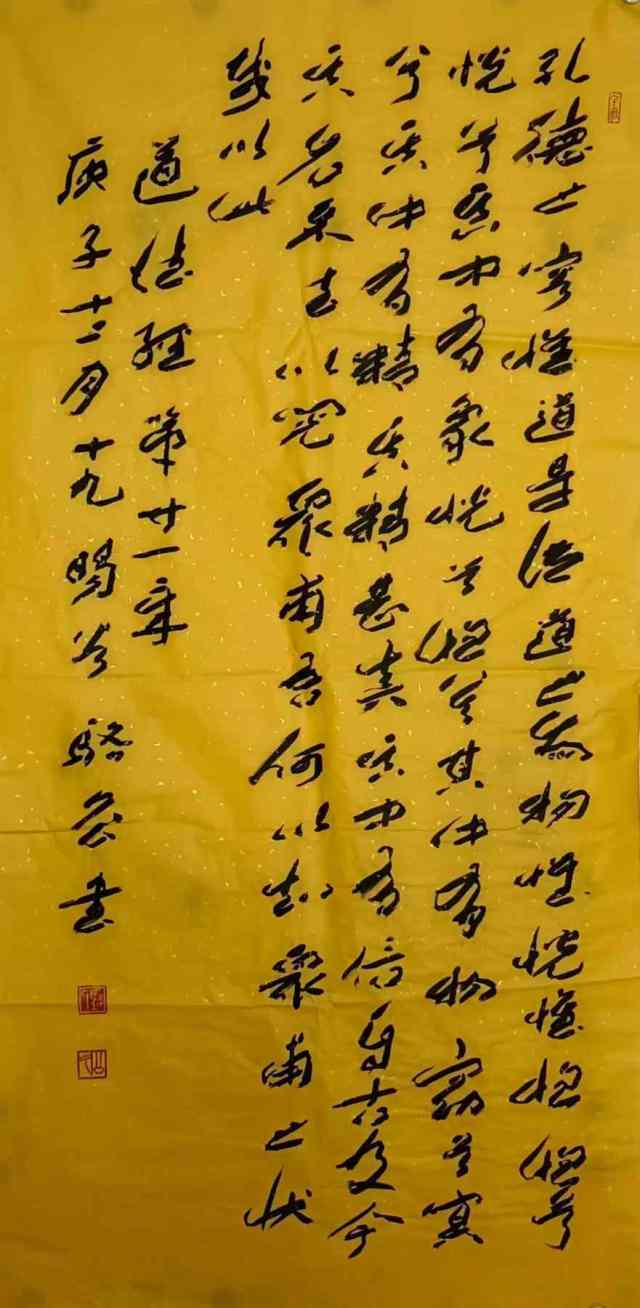 孔德之容惟道是從道之為物惟恍惟惚惚兮
恍兮其中有象恍兮惚兮其中有物窈兮冥
兮其中有精其精甚真其中有信自古及今
其名不去以閱眾甫吾何以知眾甫之状
哉以此
道德經第廿一章
庚子十二月十九暘谷駱書